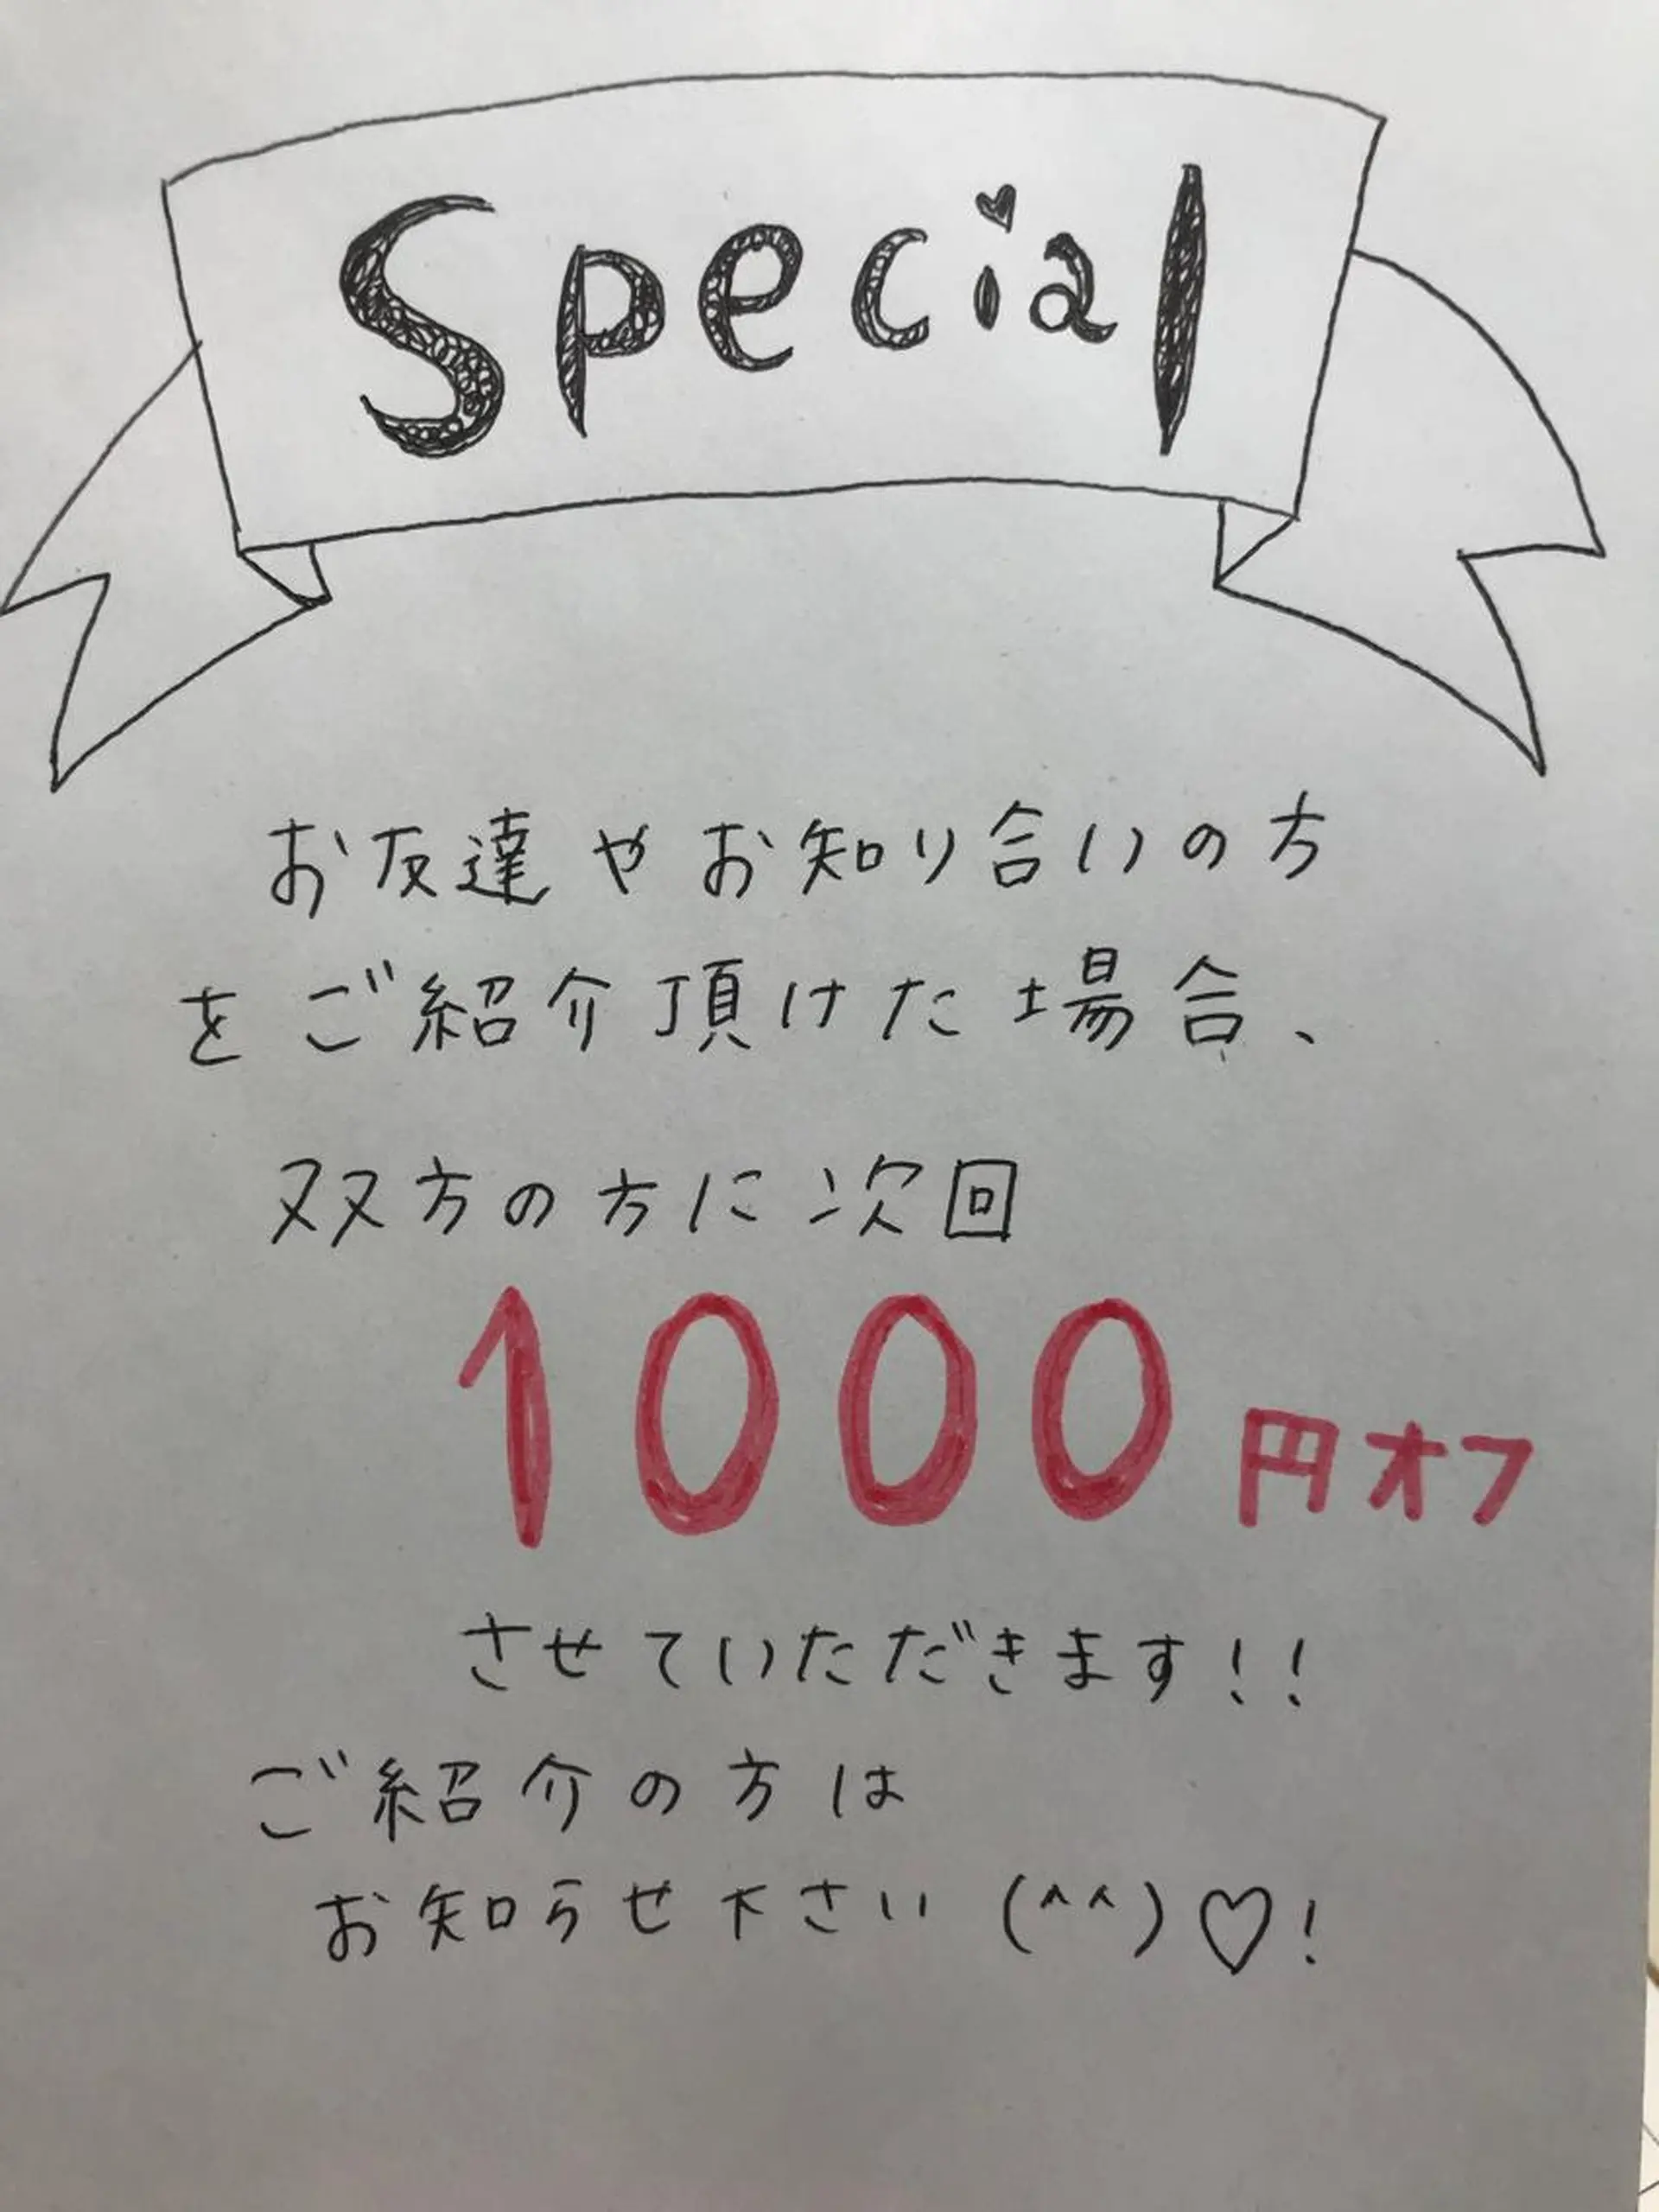 Special
お友達やお知り合いの方
をご紹介頂けた場合、
双方の方に次回
1000円オフ
させていただきます!!
ご紹介の方は
お知らせ下さい(^^)♡!